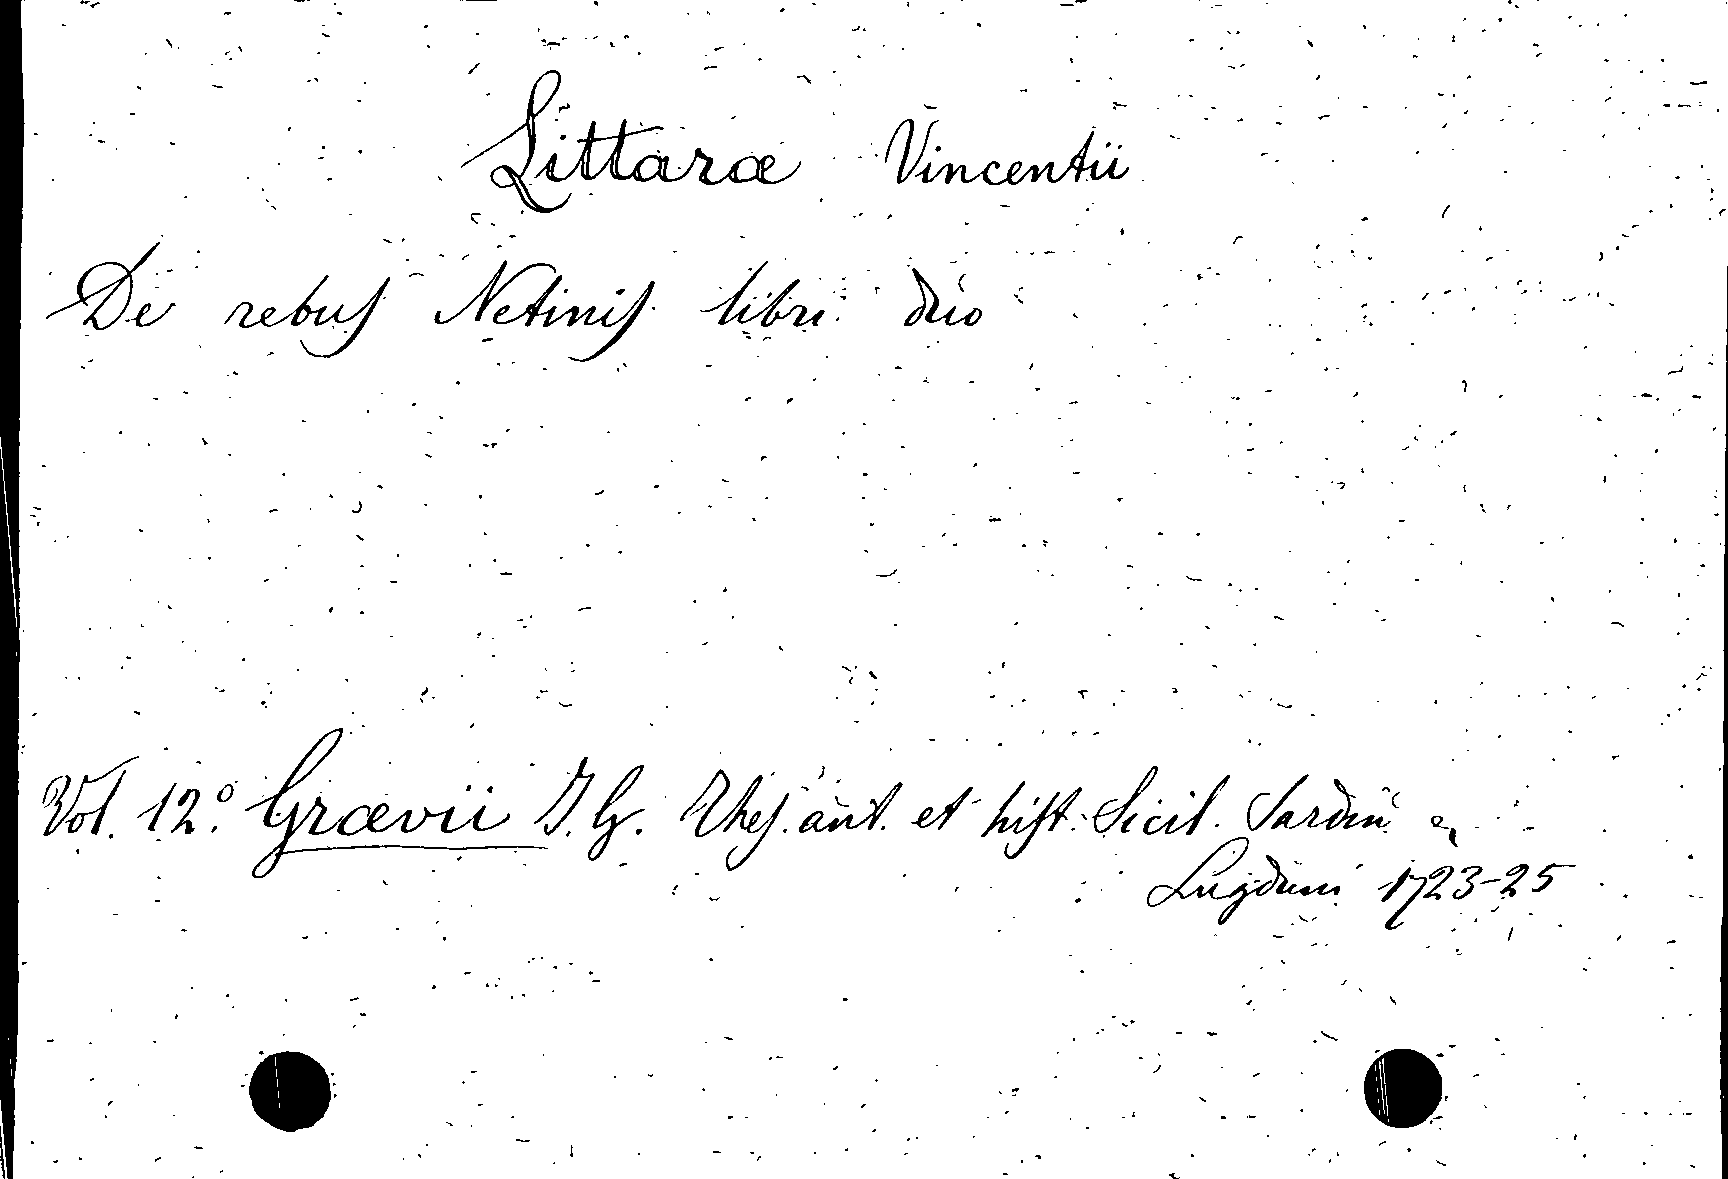 Littaræ Vincentii
De rebus Netinis libri duo
Vol. 12.º Grævii J. G. Thes. ant. et hist. Sicil. Sardin
Lugduni 1723-25